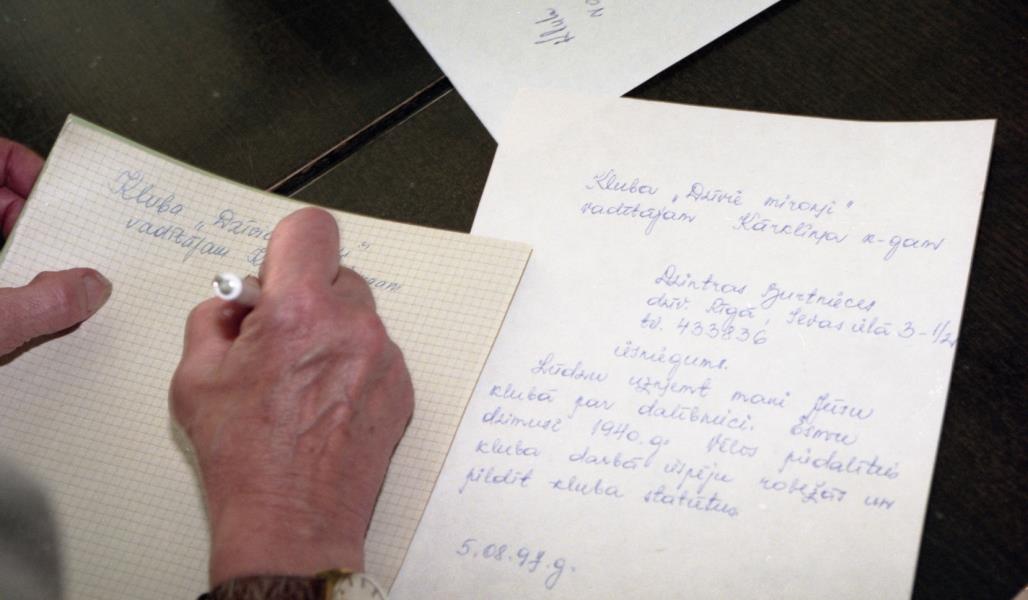 Kluba
Kluba „Dzīvie
vadītājam
Kluba „Dzīvie miroņi"
vadītājam Kārkliņa k-gam
Dzintras Burtnieces
dzīv. Rīgā, Ievas ielā 3-1/2
tv. 433836
iesniegums.
Lūdzu uzņemt mani Jūsu
klubā par dalībnieci. Esmu
dzimusi 1940.g. Vēlos piedalīties
kluba darbā iespēju robežās un
pildīt kluba statūtus
5.08.97.g.